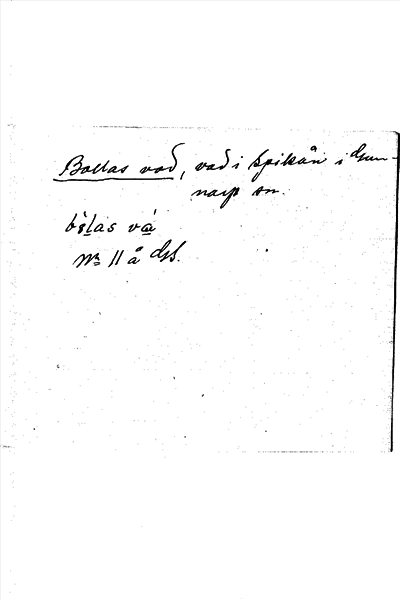 Bollas vad, vad i Spikån i Gun-
narp sn.
bòlas vá
No 11 å GS.